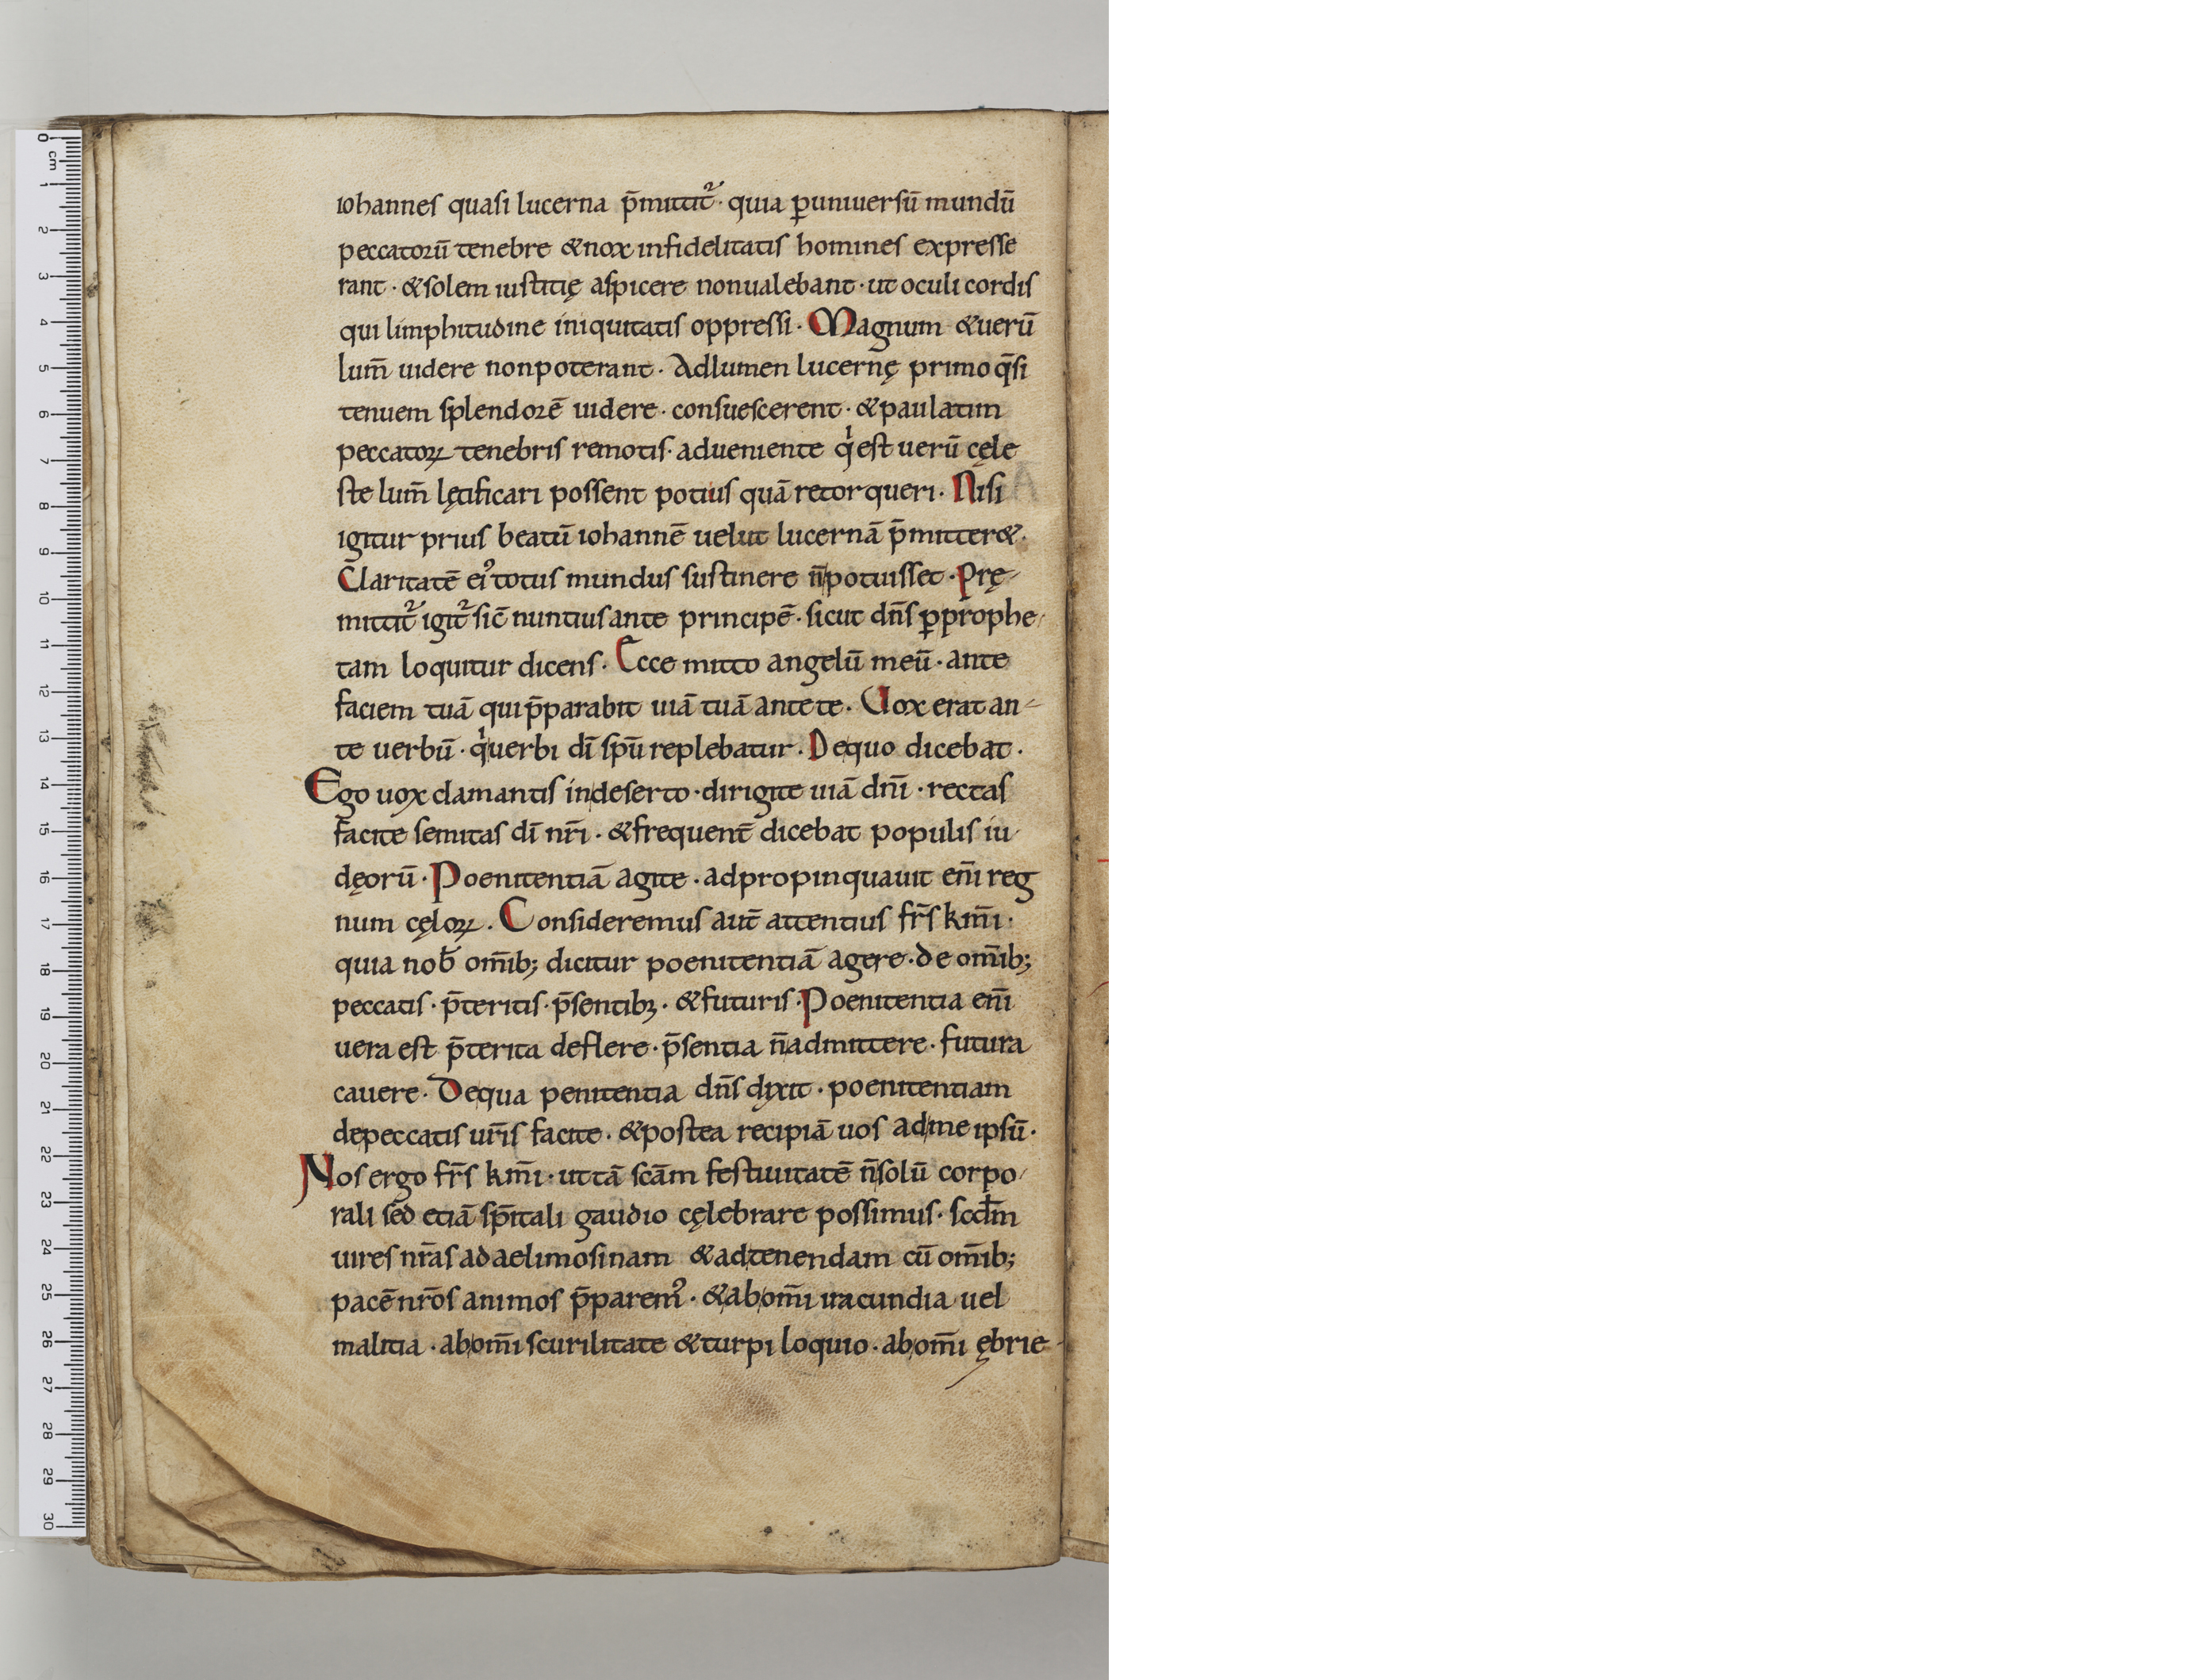 iohannes quasi lucerna p̄mittit᷑· quia ꝑuniuersū mundū
peccatorū tenebre &nox infidelitatis homines expresse
rant · &solem iustitię aspicere nonualebant · ut oculi cordis
qui limphitudine iniquitatis oppressi · Magnum &uerū
lum̄ uidere nonpoterant · Adlumen lucernę primo q̄si
tenuem splendorē uidere · consuescerent · &paulatim
peccatoꝝ tenebris remotis · adueniente qͥ est uerū cęle
ste lum̄ lętificari possent potius quā retorqueri · Nisi
igitur prius beatū iohannē uelut lucernā p̄mitter& ·
Claritatē eiꝰ totus mundus sustinere n̄ potuisset · Prę-
mittit᷑ igit᷑ sic̄ nuntius ante principē · sicut dn̄s ꝑprophe-
tam loquitur dicens · Ecce mitto angelū meū · ante
faciem tuā qui p̄parabit uiā tuā ante te · Uox erat an-
te uerbū · qͥ uerbi dī spū replebatur · Dequo dicebat ·
Ego uox clamantis indeserto · dirigite uiā dn̄i · rectas
facite semitas dī nr̄i · &frequent̄ dicebat populis iu-
dęorū · Poenitentiā agite · adpropinquauit en̄i reg
num cęloꝝ · Consideremus aut̄ attentius fr̄s km̄i ·
quia nob̄ om̄ib; dicitur poenitentiā agere · de om̄ib;
peccatis · p̄teritis · p̄sentibꝫ · &futuris · Poenitentia en̄i
uera est p̄terita deflere · p̄sentia n̄ admittere · futura
cauere · Dequa penitentia dn̄s dixit · poenitentiam
depeccatis ur̄is facite · &postea recipiā uos adme ipsū ·
Nos ergo fr̄s km̄i · ut tā scām festiuitatē n̄ solū corpo-
rali sed etiā sp̄itali gaudio cęlebrare possimus · scd̄m
uires nr̄as ad aelimosinam &adtenendam cū om̄ib;
pacē nr̄os animos p̄paremꝰ · &abom̄i iracundia uel
malitia · abom̄i scurilitate &turpi loquio · abom̄i ębrie-
0 cm 1 2 3 4 5 6 7 8 9 10 11 12 13 14 15 16 17 18 19 20 21 22 23 24 25 26 27 28 29 30